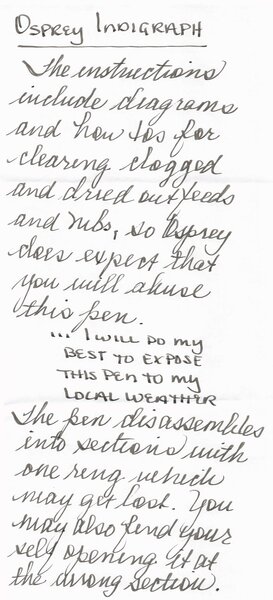 Osprey Indigraph
The instructions
include diagrams
and how tos for
clearing clogged
and dried out feeds
and nibs, so Osprey
does expect that
you will abuse
this pen.
... I WILL DO MY
BEST TO EXPOSE
THIS PEN TO MY
LOCAL WEATHER
The pen disassembles
into sections with
one ring which
may get lost. You
may also find your
self opening it at
the wrong section.